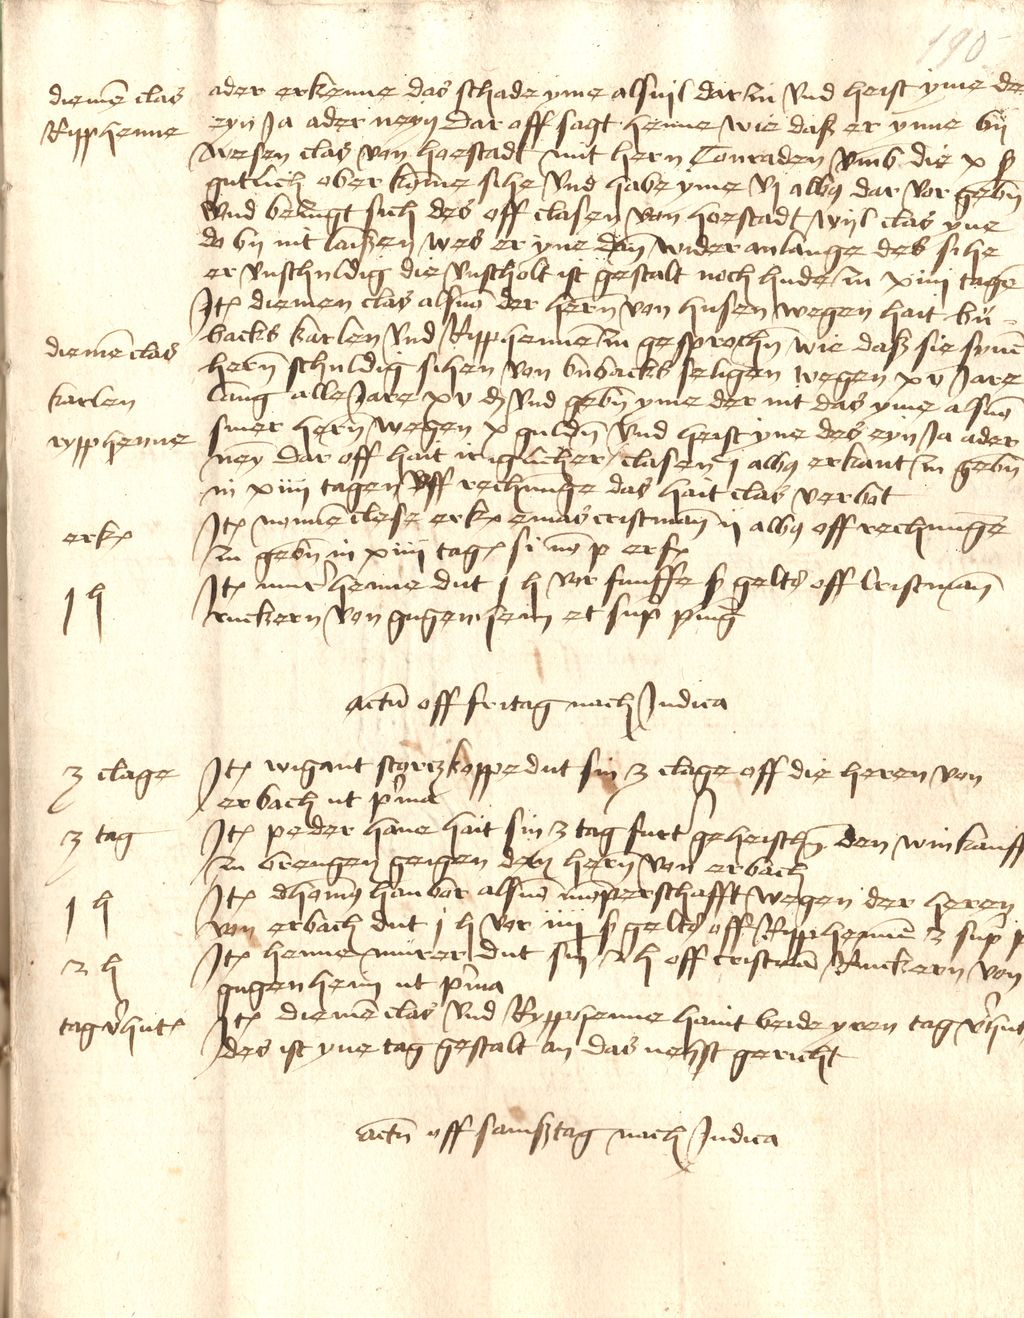 190
diemē clas
Rypphenne
ader erkenne das schade yme alsuil dar zu vnd heist yme des
eyn Ja ader neyn Dar off sagt henne wie daß er ynne by
wesen clas von hoestadt mit hern Conraden vmb die x ß
gutlich ober kōme sihe vnd habe yme vj albq dar vor gebn̄
vnd bezugt sich des off clasen von hoestadt wyl clas yne
do by nit laißen wes er yne dan̄ wider anlange des sihe
er vnschuldig die vnscholt ist gestalt noch hude zu xiiij tagē
diemē clas
karlen
rypphenne
Itꝫ diemen clas als mō der hern̄ von husen wegen hait bū
backs karlen vnd Rypphennē zu gesprochn̄ wie daß sie synē
hern̄ schuldig sihen von būbacks seligen wegen xv Jare
lang alle Jare xv d vnd gebn̄ yme der nit das yme als mō
siner hern̄ wegen x guldn̄ vnd heist yne des eyn Ja ader
ney dar off hait irigūcher clasen j albq erkant zu gebn̄
in xiiij tagen vff rechnūge das hait clas verbot
erkꝫ
Itꝫ clese erkꝫ cristman̄ ij albq off rechnūge
zu gebn̄ in xiiij tagꝫ si nō p erfꝫ
j h
Itꝫ henne dut j h vor funffe ß gelts off Cristman̄
ruckern von gugenheim et sup̄ pīnḡ
actū off fritag nach Judica
3 clage
Itꝫ wigant storczkoppe dut sin 3 clage off die heren von
erbach ut p̄ma
3 tag
Itꝫ peder hane hait sin 3 tag furt geheischn̄ den winkauff
zu brengen geigen den hern̄ von erbach
j h
Itꝫ dhomꝯ hanbor als mō mōperschafft wegen der heren
von erbach dut j h vor iiij ß gelts off Rypphennē 3 sup̄ p
2 h
Itꝫ henne murer dut sin 2 h off cristmā Ruckern von
gugenheim ut p̄ma
tag v̄hutꝫ
Itꝫ diemē clas vnd Rypphenne haint beide yren tag v̄hut
des ist yne tag gestalt an das nehst gericht
actū off samßtag nach Judica